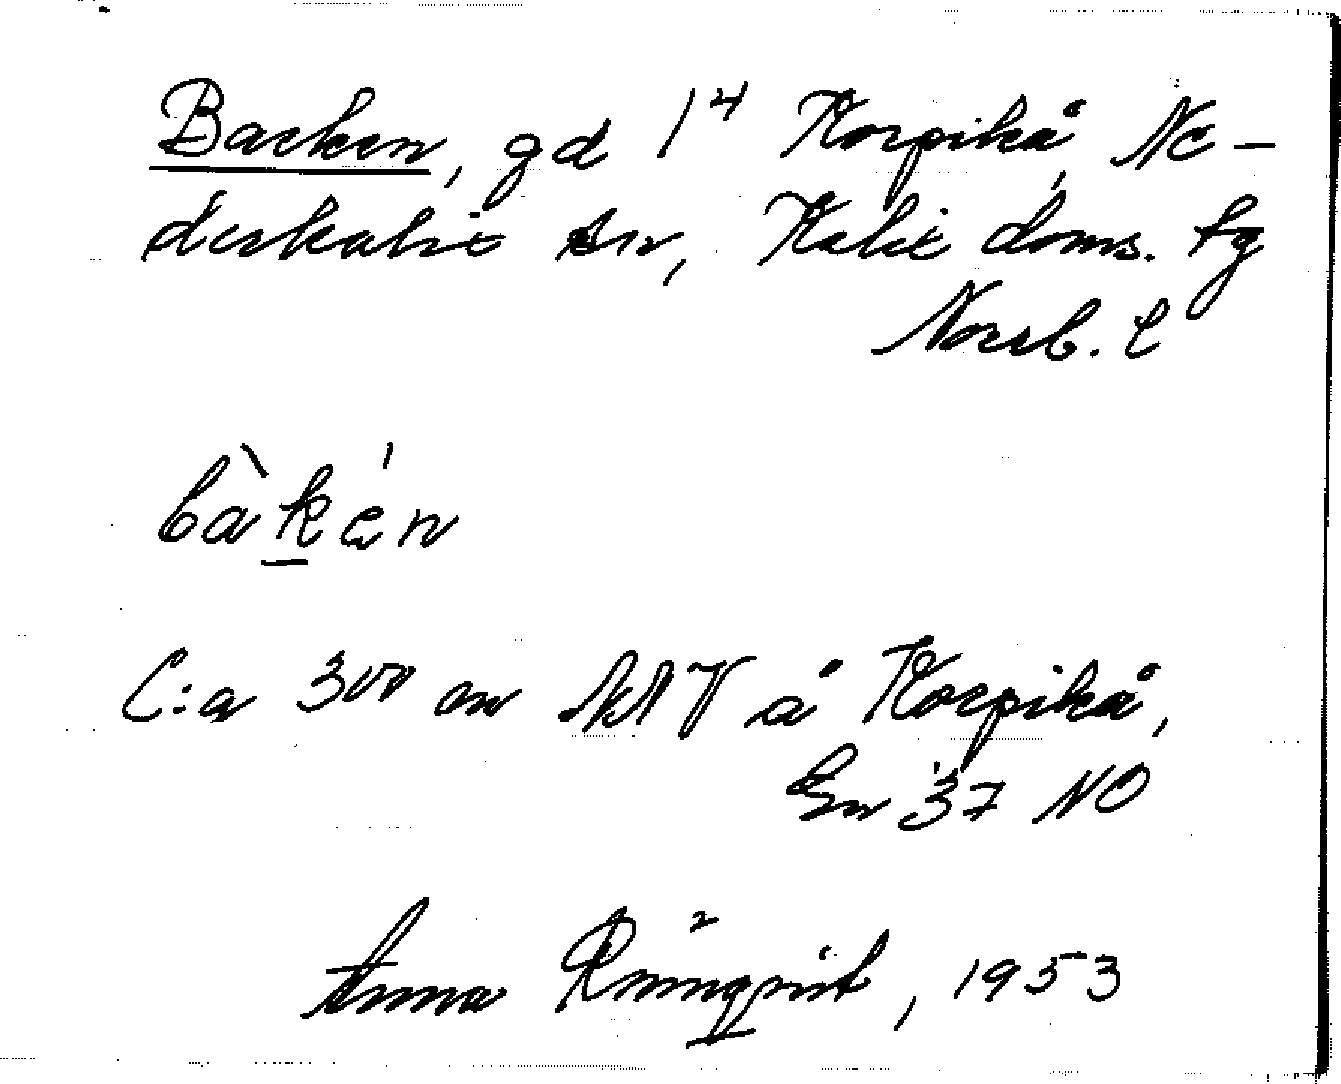 Backen, gd 1⁴ Korpikå, Ne-
derkalix sn, Kalix doms. fg
Norrb. l
bàkén
C:a 300 m NNV å Korpikå,
Gn 37 NO
Anna Rönnqvist, 1953